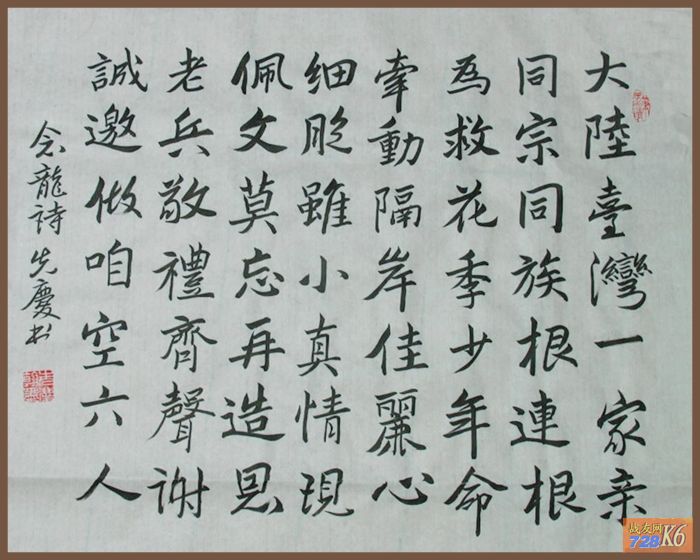 大陸臺灣一家亲
同宗同族根連根
為救花季少年命
牽動隔岸佳麗心
细胞雖小真情現
佩文莫忘再造恩
老兵敬禮齊聲謝
誠邀做咱空六人
念龍詩 先慶书
战友网
728 K6